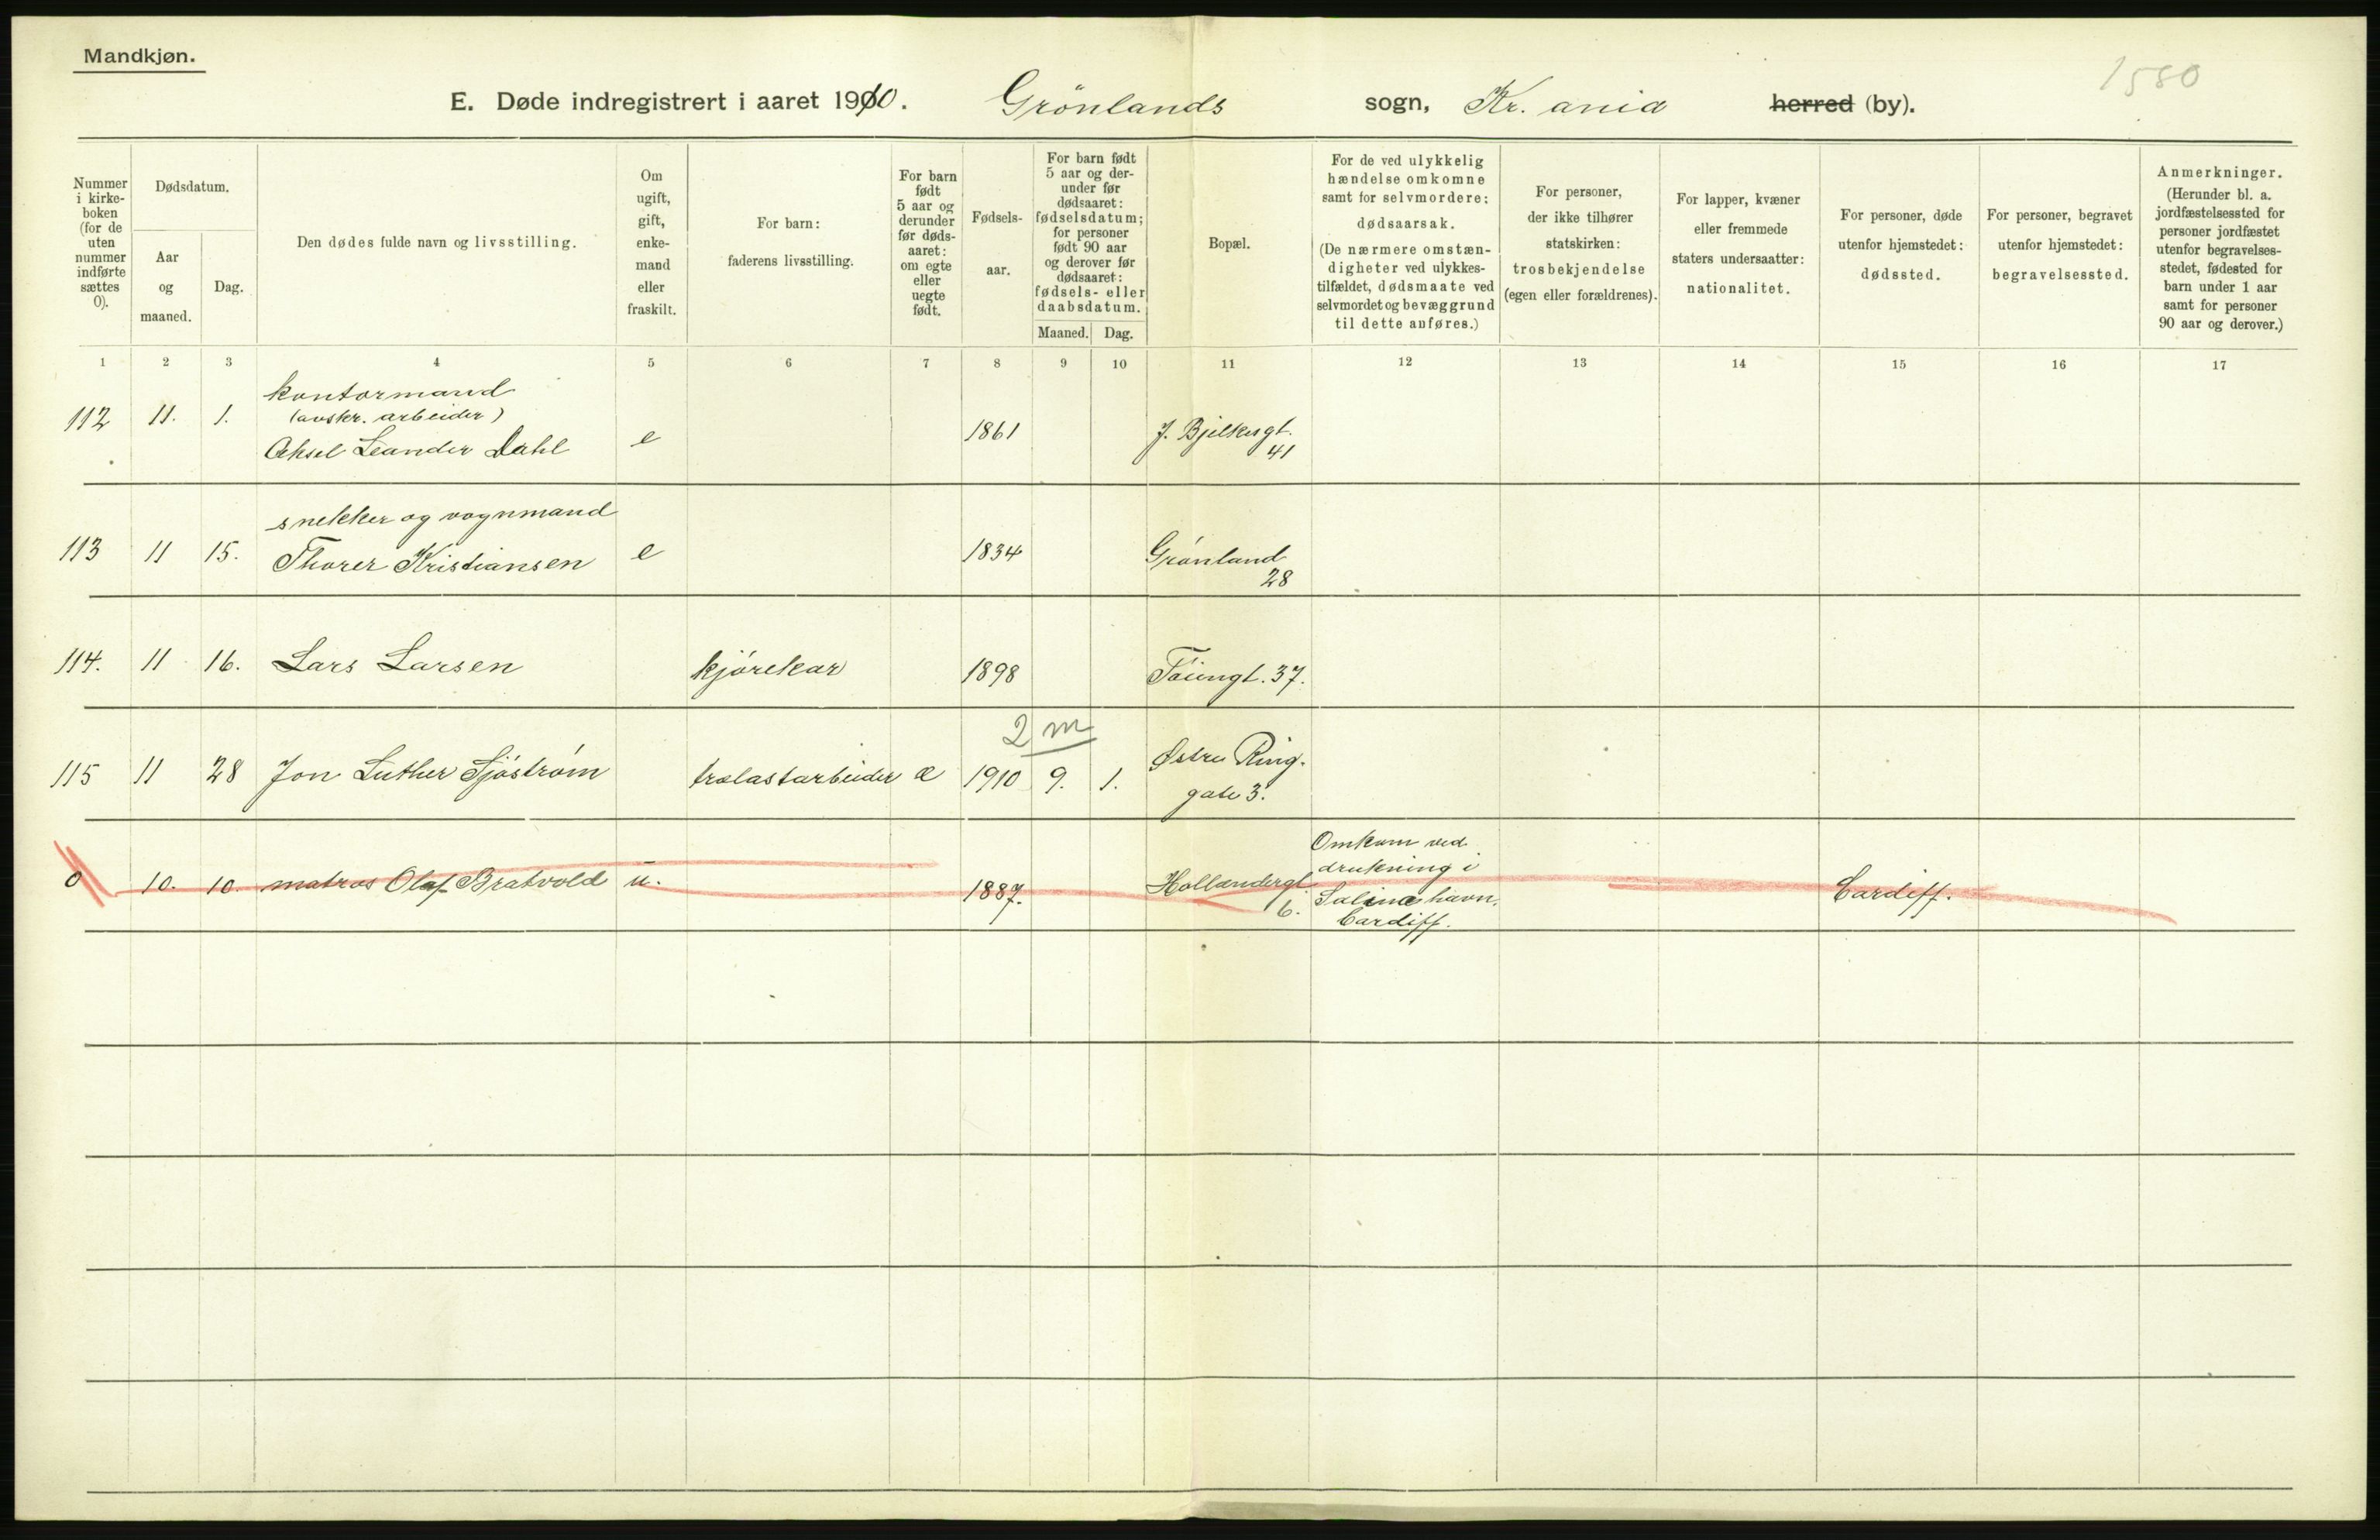 Mandkjøn.
1580
E. Døde indregistrert i aaret 1910. Grönlands sogn, Kr.ania herred (by).
Nummer i kirkeboken (for de uten nummer indførte sættes 0).
Dødsdatum.
Aar og maaned.
Dag.
Den dødes fulde navn og livsstilling.
Om ugift, gift, enkemand eller fraskilt.
For barn: faderens livsstilling.
For barn født 5 aar og derunder før dødsaaret: om egte eller uegte født.
Fødselsaar.
For barn født 5 aar og derunder før dødsaaret: fødselsdatum; for personer født 90 aar og derover før dødsaaret: fødsels- eller daabsdatum.
Maaned. Dag.
Bopæl.
For de ved ulykkelig hændelse omkomne samt for selvmordere: dødsaarsak. (De nærmere omstændigheter ved ulykkestilfældet, dødsmaate ved selvmordet og bevæggrund til dette anføres.)
For personer, der ikke tilhører statskirken: trosbekjendelse (egen eller forældrenes).
For lapper, kvæner eller fremmede staters undersaatter: nationalitet.
For personer, døde utenfor hjemstedet: dødssted.
For personer, begravet utenfor hjemstedet: begravelsessted.
Anmerkninger. (Herunder bl. a. jordfæstelsessted for personer jordfæstet utenfor begravelsesstedet, fødested for barn under 1 aar samt for personer 90 aar og derover.)
1 2 3 4 5 6 7 8 9 10 11 12 13 14 15 16 17
kontormand
(avskr. arbeider)
112 11. 1. Aksel Leander Dahl e 1861 J. Bjelkesgt.
41
snekker og vognmand
113 11 15. Thorer Kristiansen e 1834 Grønland
28
114. 11 16. Lars Larsen kjørekar 1898 Töiengt. 37.
2 m
115 11 28 Jon Luther Sjöström trælastarbeider æ 1910 9. 1. Østre Ring-
gate 3.
Omkom ved
drukning i
0 10. 10. matros Olaf Bratvold u. 1887. Hollendergt
6. Salinashavn.
Cardiff.
Cardiff.